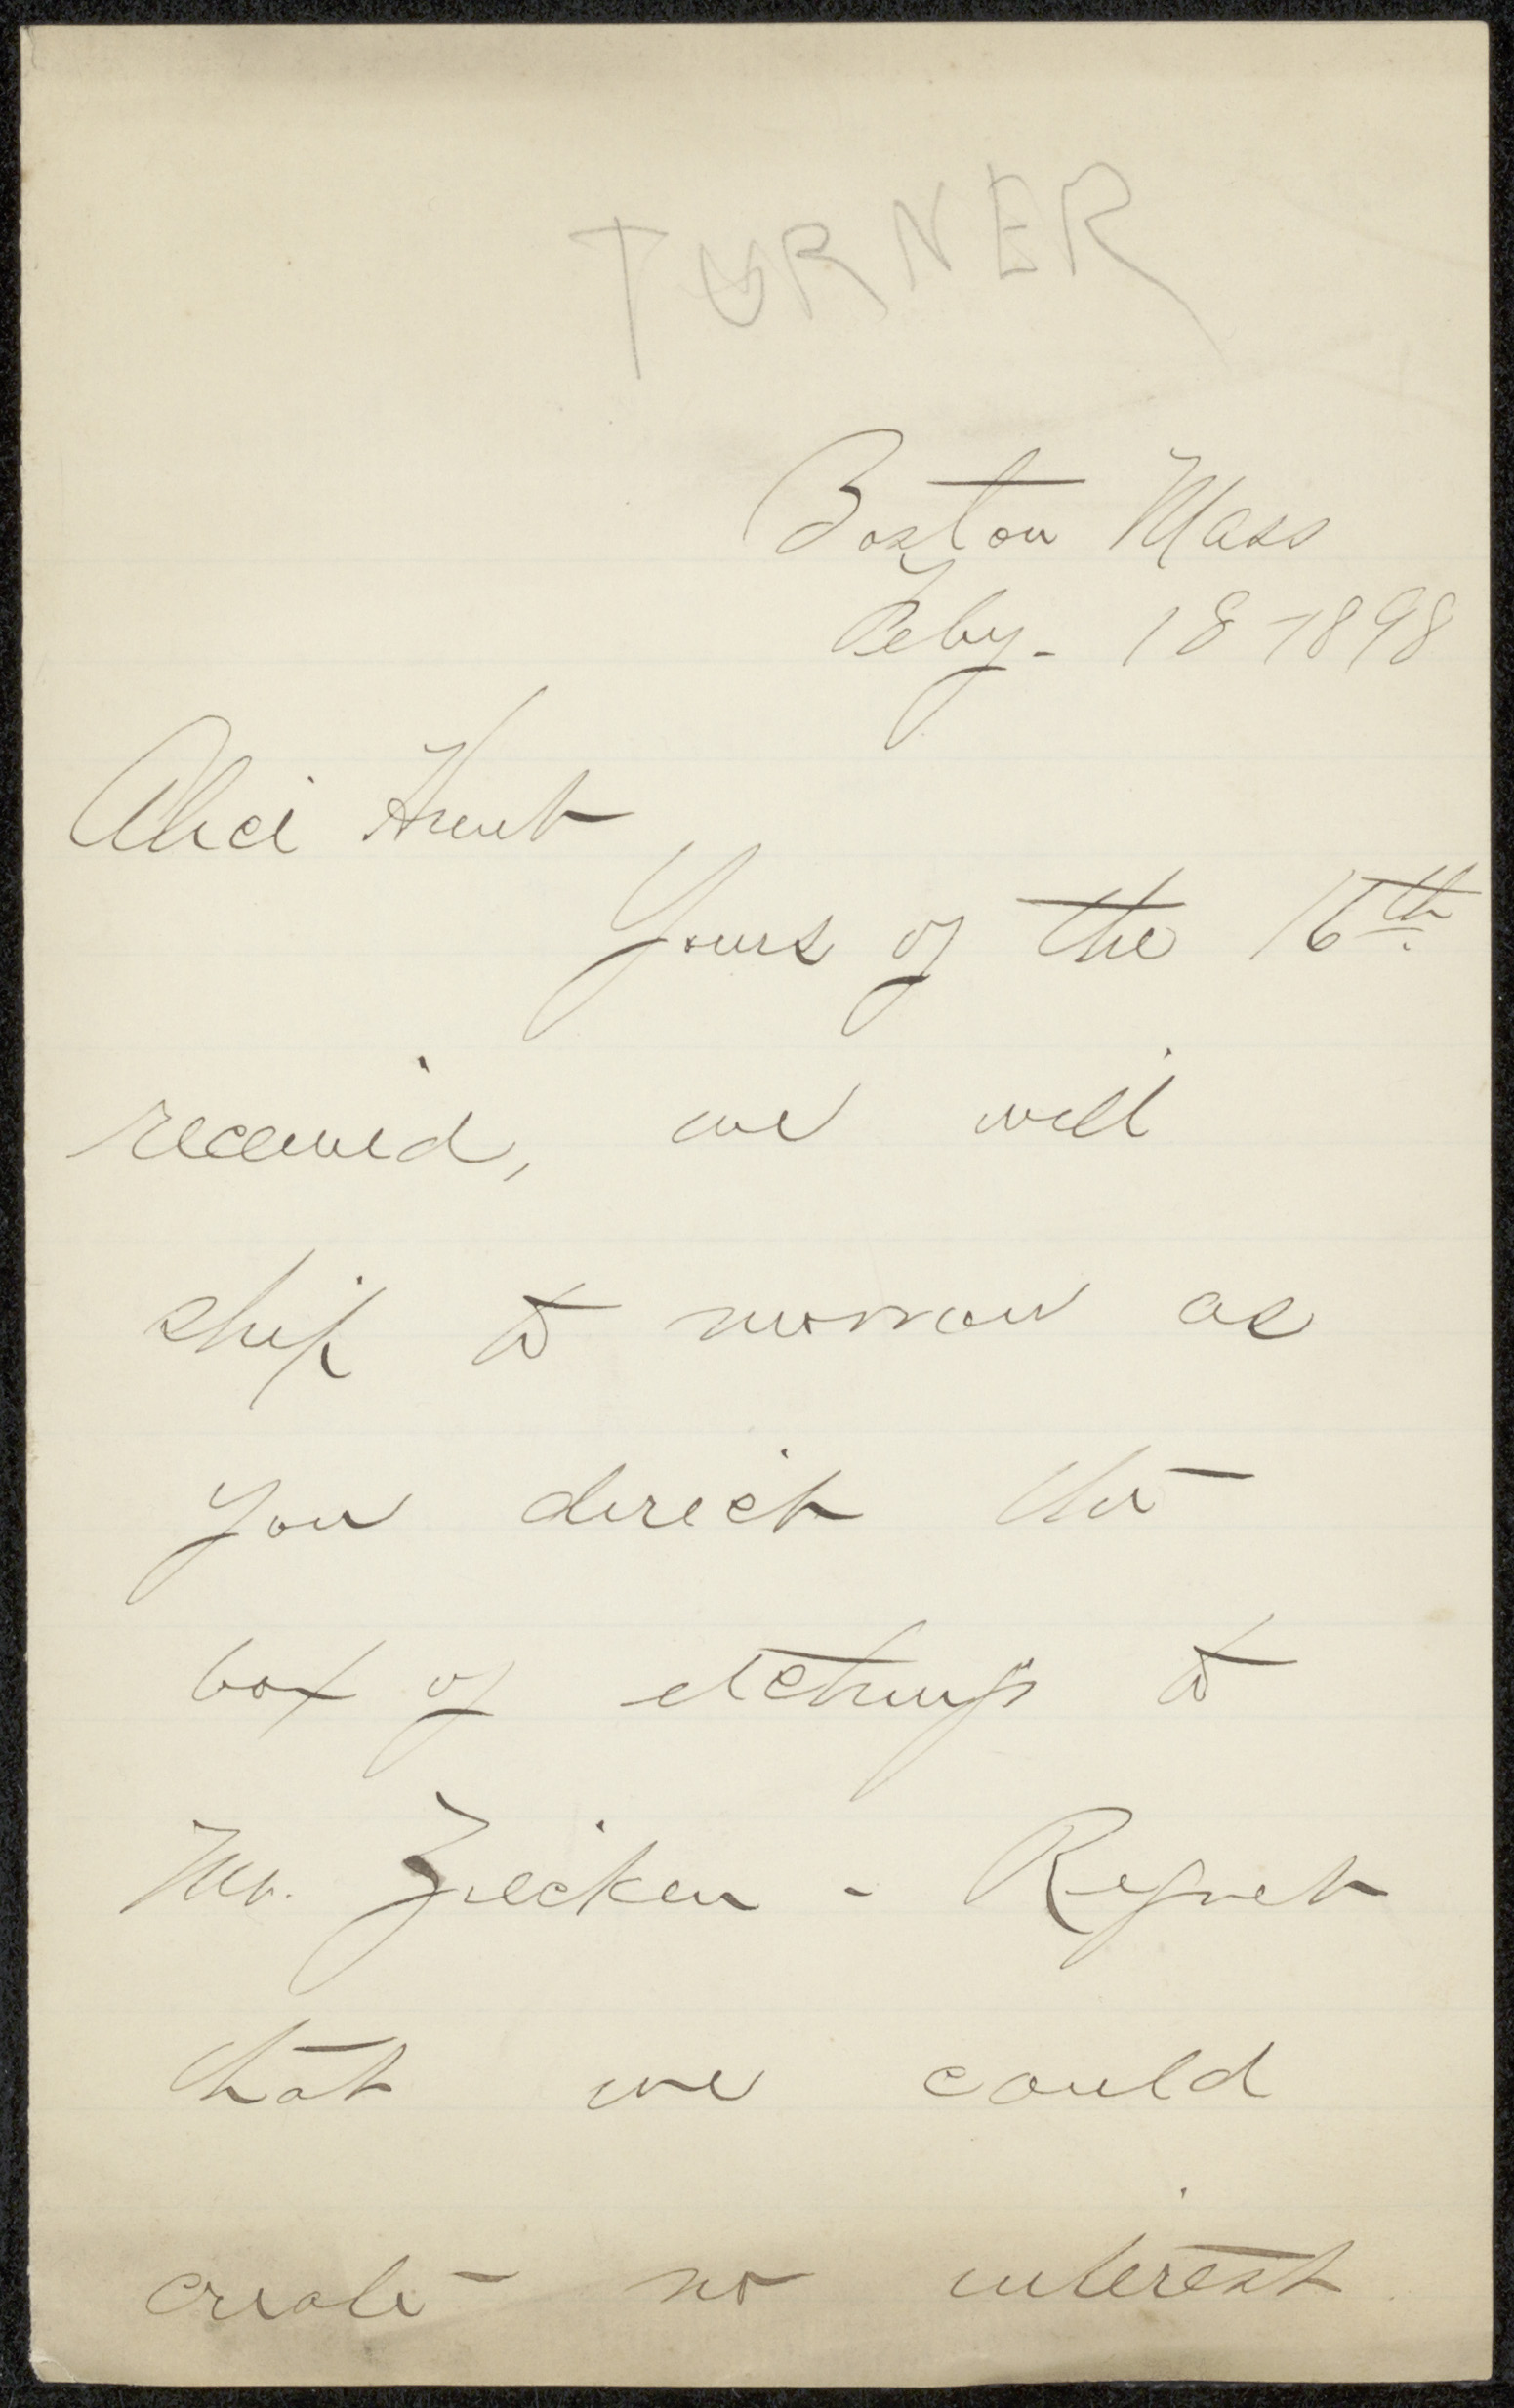 TURNER
Boston Mass
Feby - 18 1898
Alice Hunt
Yours of the 16th
received, we will
ship to morrow as
you direct the
box of etchings to
Mr. - Regret
that we could
create no interest